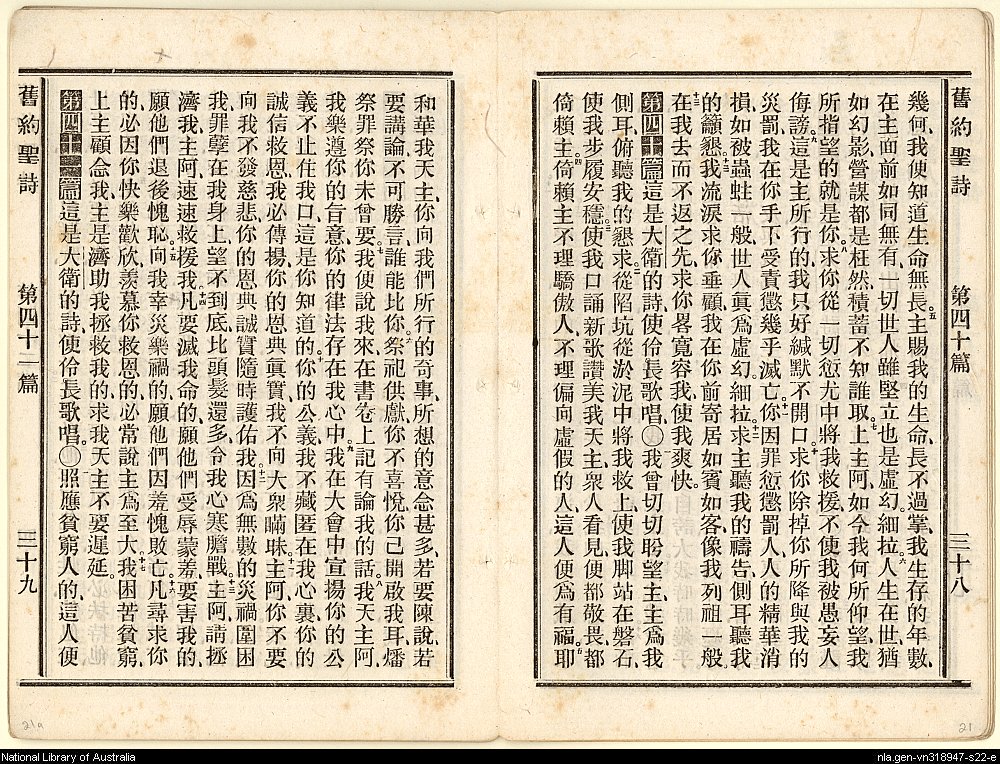 舊約聖詩 第四十篇 三十八
幾何、我便知道生命無長、五主賜我的生命、長不過掌、我生存的年數、
在主面前如同無有、一切世人雖堅立也是虛幻、細拉、六人生在世、猶
如幻影、營謀都是枉然、積蓄不知誰取、七上主阿、如今我何所仰望、我
所指望的就是你、八求你從一切愆尤中將我救援、不使我被愚妄人
侮謗、九這是主所行的、我只好緘默不開口、十求你除掉你所降與我的
災罰、我在你手下受責懲、幾乎滅亡、十一你因罪愆懲罰人、人的精華消
損、如被蟲蛀一般、世人眞爲虛幻、細拉、十二求主聽我的禱告、側耳聽我
的籲懇、我流淚求你垂顧、我在你前寄居如賓如客、像我列祖一般、
十三在我去而不返之先、求你畧寬容我、使我爽快、
第四十篇 這是大衛的詩、使伶長歌唱、〇一我曾切切盼望主、主爲我
側耳、俯聽我的懇求、二從陷坑從淤泥中將我救上、使我脚站在磐石、
使我步履安穩、三使我口誦新歌、讚美我天主、衆人看見便都敬畏、都
倚賴主、四倚賴主不理驕傲人、不理偏向虛假的人、這人便爲有福、五耶
和華我天主、你向我們所行的奇事、所想的意念甚多、若要陳說、若
要講論、不可勝言、誰能比你、六祭祀供獻你不喜悅、你已開啟我耳、燔
祭罪祭你未曾要、七我便說我來、在書卷上記有論我的話、八我天主阿、
我樂遵你的旨意、你的律法存在我心中、九我在大會中宣揚你的公
義、不止住我口、這是你知道的、十你的公義我不藏匿在我心裏、你的
誠信救恩我必傳揚、你的恩典眞實我不向大衆瞞昧、十一主阿、你不要
向我不發慈悲、你的恩典誠實隨時護佑我、十二因爲無數的災禍圍困
我、罪孽在我身上望不到底、比頭髮還多、令我心寒膽戰、十三主阿、請拯
濟我、主阿、速速救援我、十四凡要滅我命的、願他們受辱蒙羞、要害我的、
願他們退後愧恥、十五向我幸災樂禍的、願他們因羞愧敗亡、十六凡尋求你
的、必因你快樂歡欣、羨慕你救恩的、必常說主爲至大、十七我困苦貧窮、
上主顧念我、主是濟助我拯救我的、求我天主不要遲延、
第四十一篇 這是大衛的詩、使伶長歌唱、〇一照應貧窮人的、這人便
舊約聖詩 第四十二篇 三十九
21a
21
National Library of Australia
nla.gen-vn318947-s22-e